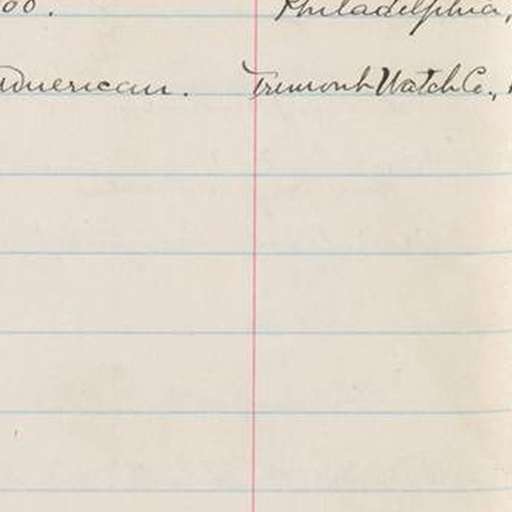 00. Philadelphia,
American. Tremont Watch Co.,